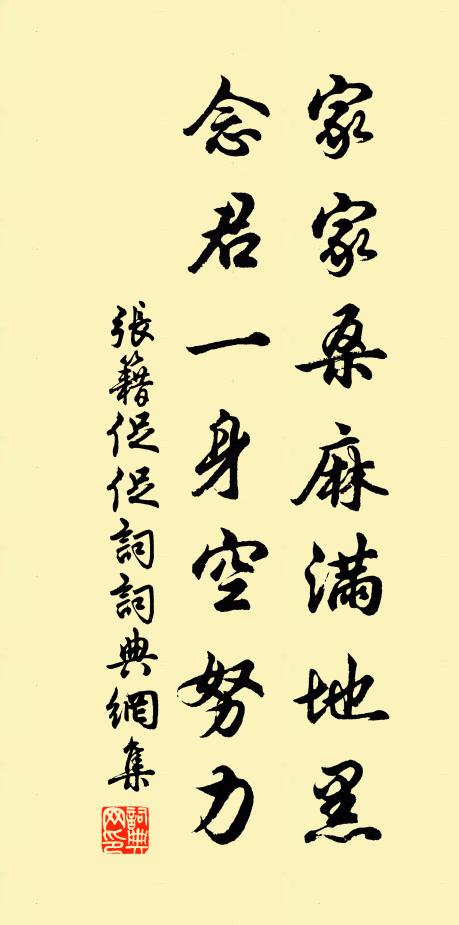 家家桑麻满地黑
念君一身空努力
張籍促促詞詞典網集
詞典
网印